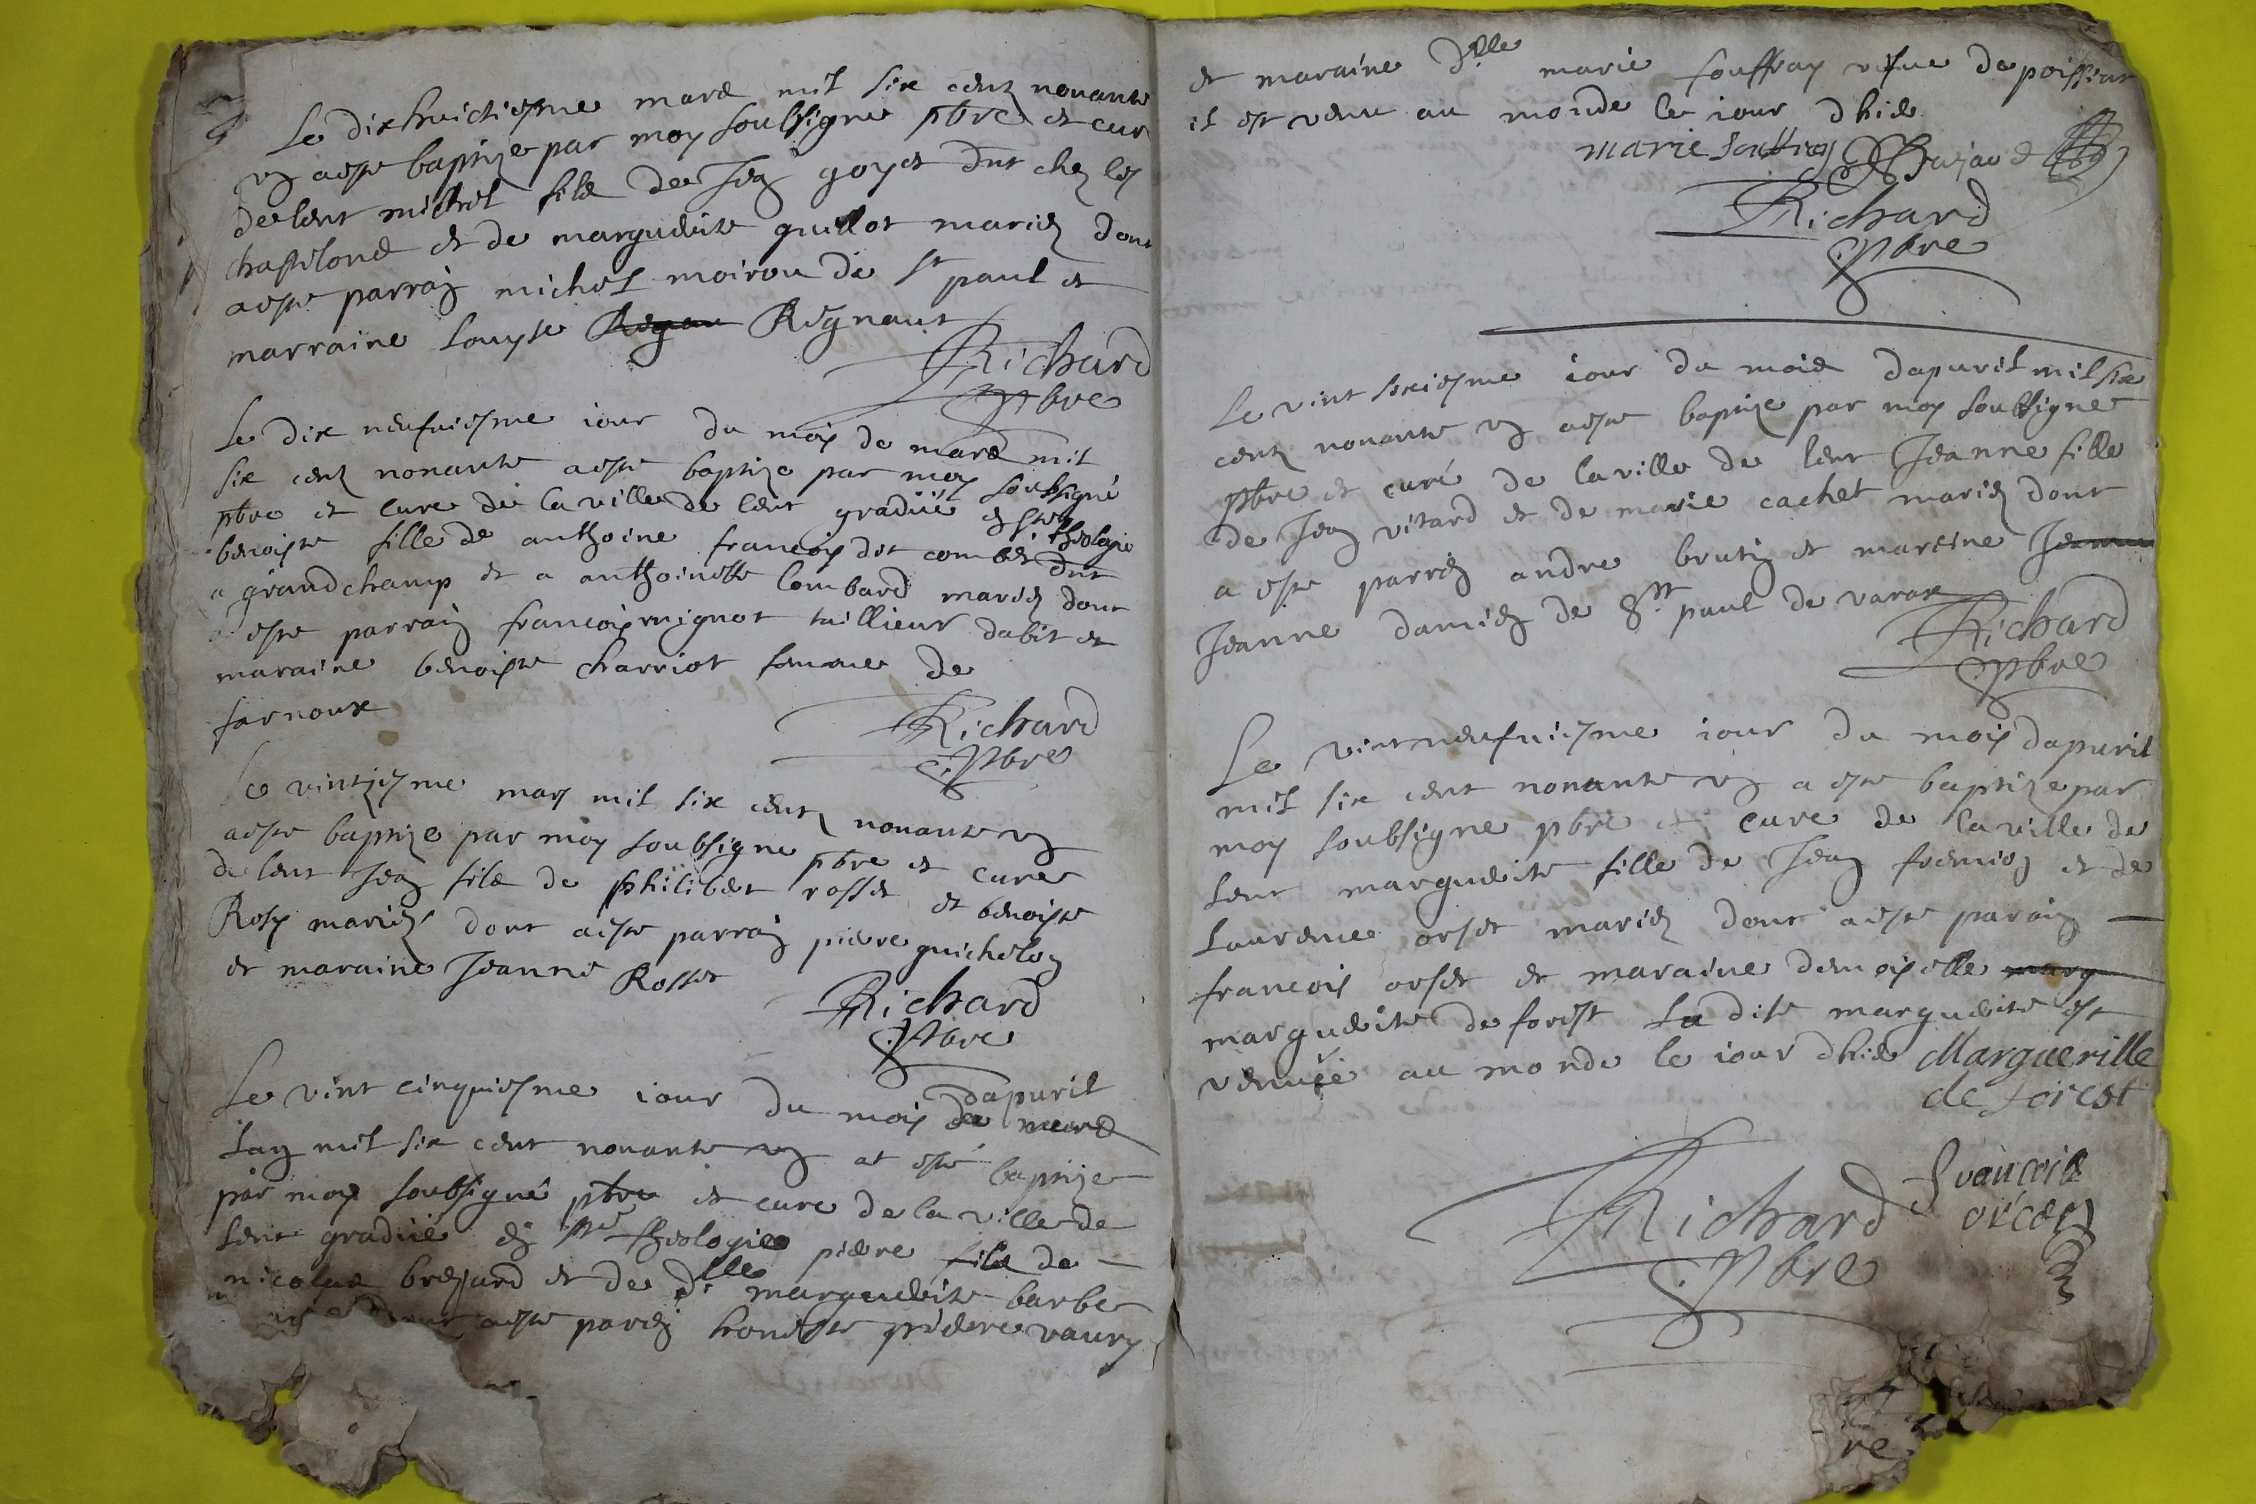 Le dixhuictiesme mars mil six centz nonante
vn aeste baptize par moy soubsigne pbre et cur
de lent michel fils de Jean goyet dnt chez les
chastelons et de marguerite guillot mariez dont
aeste parrain michel moirou de st paul et
marraine louyse Regau Regnaut
Richard
pbre
Le dix neufuiesme iour du mois de mars mil
six centz nonante aeste baptize par moy soubsigné
pbre et cure de la ville de lent graduié en ste theologie
benoiste fille de anthoine francois dit combet dnt
a grandchamp et a anthoinette lombard mariez dont
a este parrain francois mignot taillieur dabit et
maraine benoiste charriot femme de
farnoux
Richard
pbre
Le vintjesme mars mil six centz nonante vn
aeste baptize par moy soubsigne pbre et cure
de lent Jean fils de philibert rosset et benoiste
Rosy mariez dont aeste parrain pierre guichelon
et maraine Jeanne Rosset
Richard
pbre
Le vint cinquiesme iour du mois de mars dapuril
lan mil six cent nonante vn at esté baptize
par moy soubsigné pbre et cure de la ville de
lent graduié en ste theologie pierre fils de
nicolas brejard et de dlle marguerite barbe
dont aeste parein honeste pierre vaury
et maraine dlle marie souffray vefue de poissieur
il est venu au monde le iour dhier
marie souffray Brejard
Richard
pbre
Le vint sixiesme iour du mois dapuril mil six
centz nonante vn aeste baptize par moy soubsigne
pbre et curé de la ville de lent Jeanne fille
de Jean vitard et de marie cachet mariez dont
a este parrein andre brutin et mareine Jeanne
Jeanne damien de St paul de varax
Richard
pbre
Le vint neufuiesme iour du mois dapuril
mil six cent nonante vn a este baptize par
moy soubsigne pbre et cure de la ville de
lent marguerite fille de Jean fremion et de
laurence orset mariez dont aeste parain
francois orset et maraine demoiselle marg
marguerite de forest la dite marguerite est
venuée au monde le iour dhier Marguerille
de forest
francois
orcet
Richard
pbre
re